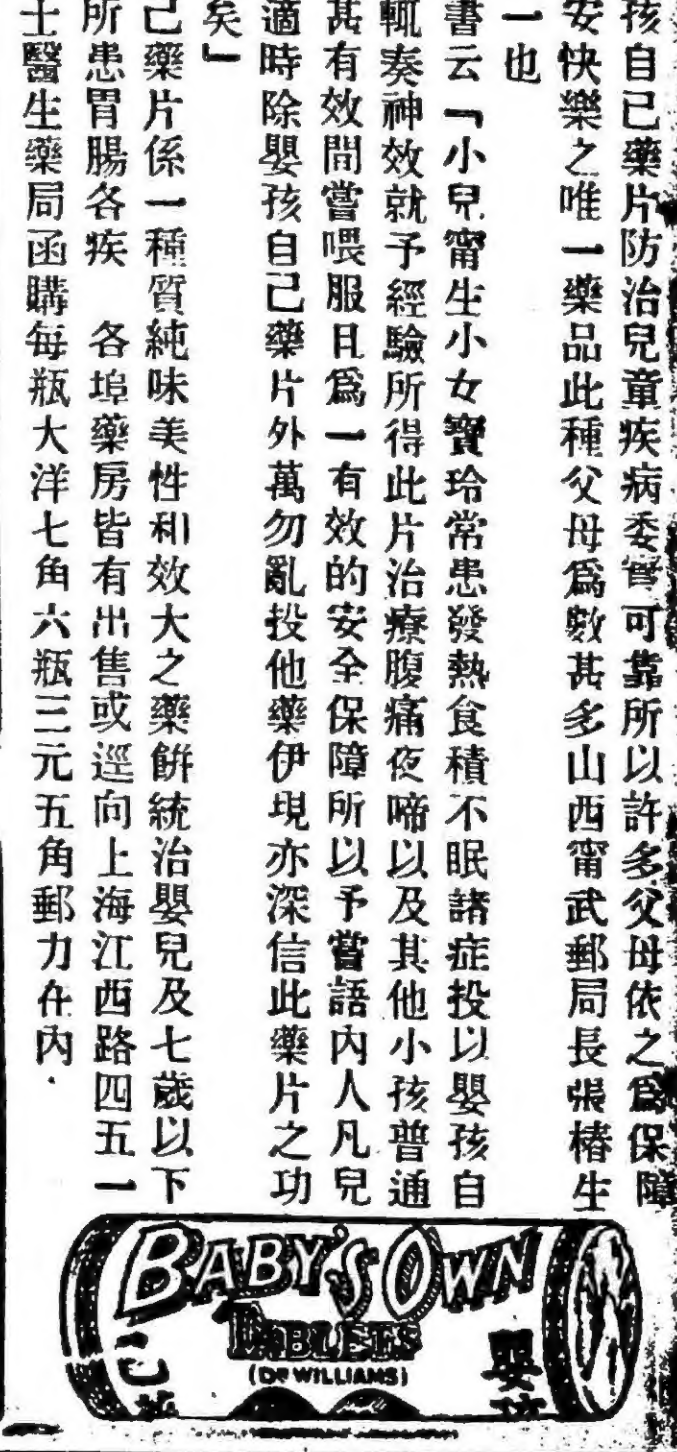 孩自己藥片防治兒童疾病委實可靠所以許多父母依之爲保障
安快樂之唯一藥品此種父母爲數甚多山西甯武郵局長張椿生
一也
書云『小兒甯生小女寶玲常患發熱食積不眠諸症投以嬰孩自
輒奏神效就予經驗所得此片治療腹痛夜啼以及其他小孩普通
甚有效間嘗喂服且爲一有效的安全保障所以予嘗語內人凡兒
適時除嬰孩自己藥片外萬勿亂投他藥伊現亦深信此藥片之功
矣』
己藥片係一種質純味美性和效大之藥餅統治嬰兒及七歲以下
所患胃腸各疾　各埠藥房皆有出售或逕向上海江西路四五一
士醫生藥局函購每瓶大洋七角六瓶三元五角郵力在內.
BABY'S OWN
TABLETS
(DR WILLIAMS)
嬰孩
己藥